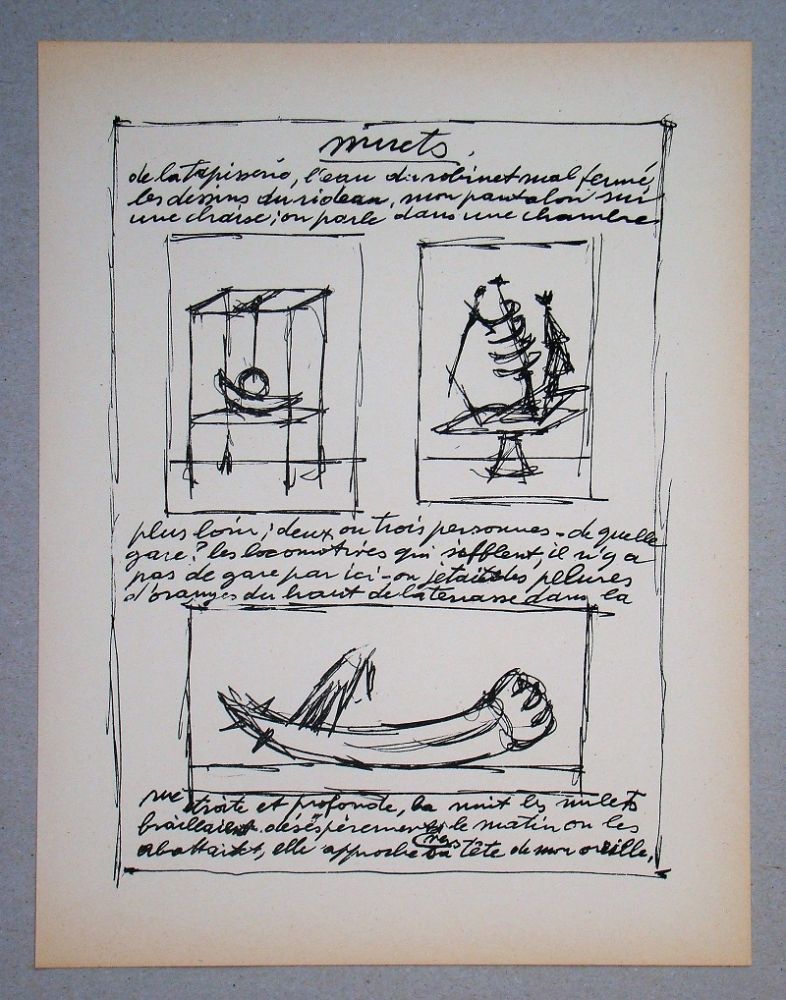 muets.
de la tapisserie, l'eau du robinet mal fermé,
les dessins du rideau, mon pantalon sur
une chaise; on parle dans une chambre
plus loin; deux ou trois personnes - de quelle
gare? les locomotives qui sifflent, il n'y a
pas de gare par ici - on jetait des pelures
d'oranges du haut de la terrasse dans la
rue étroite et profonde, la nuit les mulets
braillaient déséspérement vers le matin on les
abattait, elle approche sa tête de mon oreille,